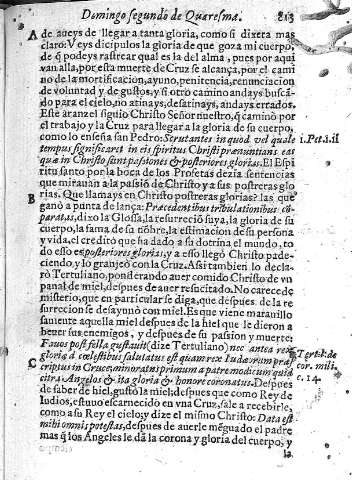 Domingo segundo de Quaresma. 813
A de aueys de llegar a tanta gloria, como si dixera mas
claro: Veys dicipulos la gloria de que goza mi cuerpo,
de q̃ podeys rastrear qual es la del alma, pues por aqui
van alla, por esta muerte de Cruz se alcança, por el cami
no de la mortificacion, ayuno, penitencia, renunciacion
de voluntad y de gustos, y si otro camino andays buscã-
do para el cielo, no atinays, desatinays, andays errados.
Este aranzel siguio Christo Señor nuestro, q̃ caminò por
el trabajo y la Cruz para llegar a la gloria de su cuerpo,
como lo enseña san Pedro: Scrutantes in quod vel quale
tempus significaret in eis spiritus Christi prænuntians eas
quæ in Christo sunt passiones & posteriores glorias. El Espi
ritu santo por la boca de los Profetas dezia sentencias
que mirauan a la passiõ de Christo y a sus postreras glo
rias. Que llamays en Christo postreras glorias? las que
B ganò a punta de lança: Præcedentibus tribulationibus cõ-
paratas, dixo la Glossa, la resurreciõ suya, la gloria de su
cuerpo, la fama de su nõbre, la estimacion de su persona
y vida, el credito que ha dado a su dotrina el mundo, to
do esso es posteriores glorias, y a esso llegò Christo pade-
ciendo, y lo grangeò con la Cruz. Assi tambien lo decla
rò Tertuliano, ponderando auer comido Christo de vn
panal de miel, despues de auer resucitado. No carece de
misterio, que en particular se diga, que despues de la re
surrecion se desayunò con miel. Es que viene marauillo
samente aquella miel despues de la hiel que le dieron a
beuer sus enemigos, y despues de su passion y muerte:
Fauos post fella gustauit (dize Tertuliano) nec antea rex
gloriæ à cœlestibus salutatus est quam rex Iudæorum præ
C criptus in Cruce, minoratus primum a patre modicum quid
citra Angelos & ita gloria & honore coronatus. Despues
de saber de hiel, gustò la miel; despues que como Rey de
Iudios, estuuo escarnecido en vna Cruz, sale a recebirle,
como a su Rey el cielo; y dize el mismo Christo: Data est
mihi omnis potestas, despues de auerle mẽguado el padre
mas q̃ los Angeles le dã la corona y gloria del cuerpo, y
la
1. Pet. 1. 11
Tert. de
cor. mili.
c. 14.